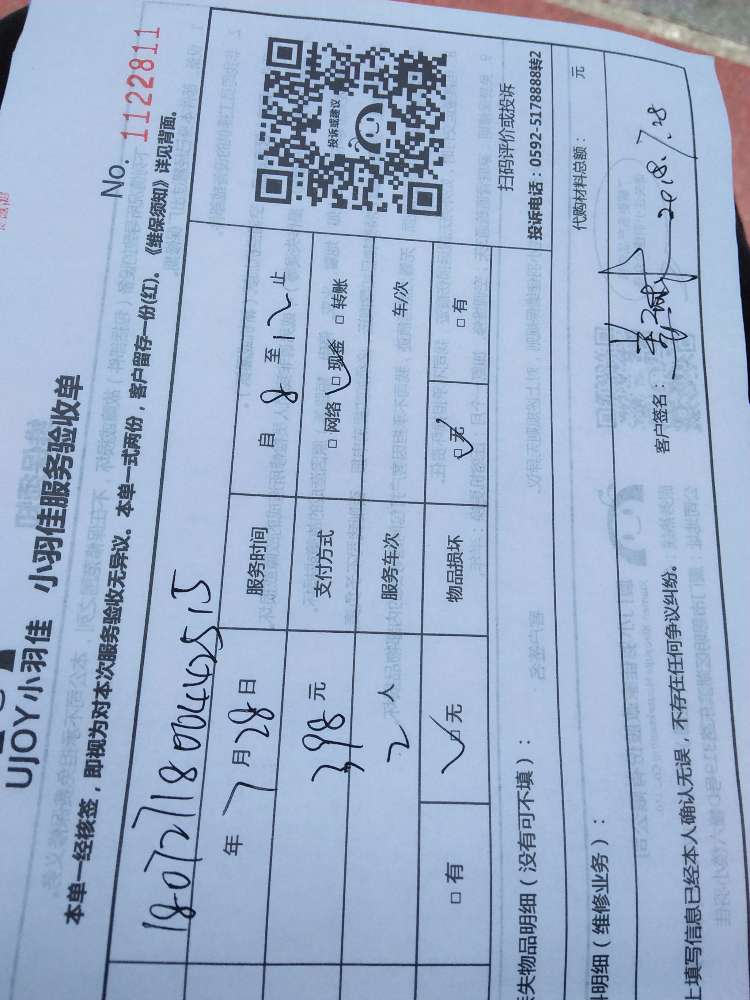 UJOY小羽佳 小羽佳服务验收单
No. 1122811
本单一经核签，即视为对本次服务验收无异议。本单一式两份，客户留存一份(红)。《维保须知》详见背面。
年 7 月 28 日 服务时间 自 8 至 12 止
398 元 支付方式 □ 网络 □ 现金 □ 转账
2 人 服务车次 车/次
□ 有 □ 无 物品损坏 □ 无 □ 有
投诉或建议
扫码评价或投诉
投诉电话：0592-5178888转2
失物品明细（没有可不填）：
代购材料总额： 元
明细（维修业务）：
上填写信息已经本人确认无误，不存在任何争议纠纷。 客户签名： 2018.7.28